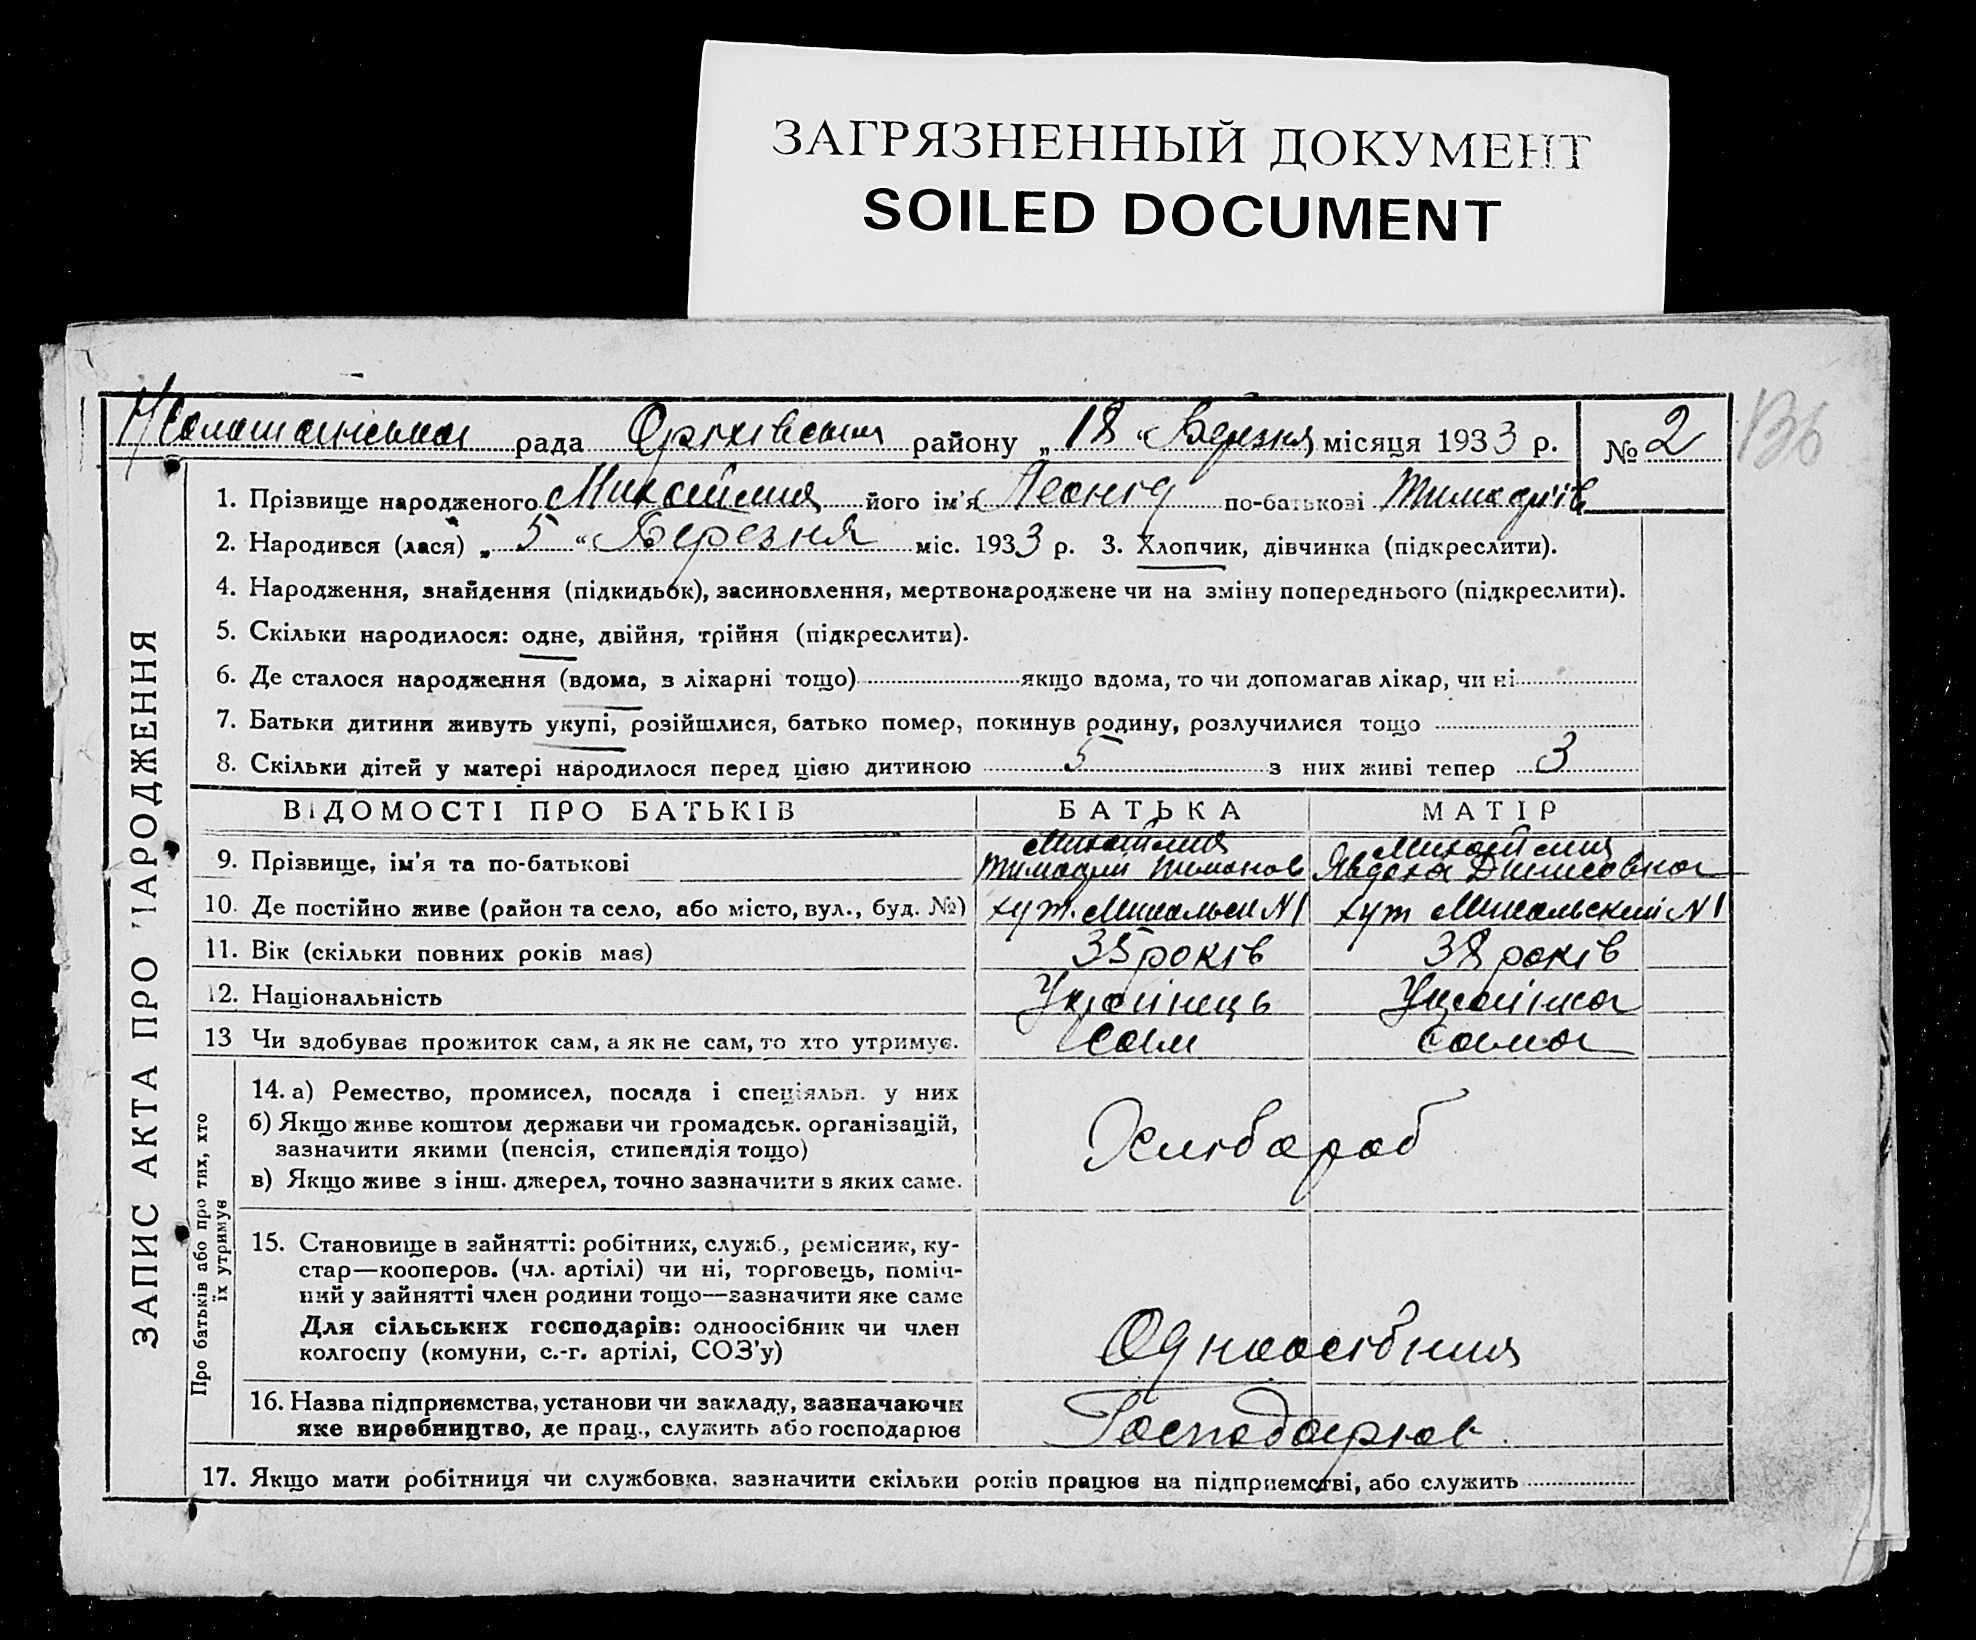 ЗАГРЯЗНЕННЫЙ ДОКУМЕНТ
SOILED DOCUMENT
136
рада Оріхівськи району „ 18 “ Березня місяця 1933 р. № 2
ЗАПИС АКТА ПРО НАРОДЖЕННЯ
1. Прізвище народженого його ім'я Леонід по-батькові
2. Народився (лася) „ 5 “ Березня міс. 1933 р. 3. Хлопчик, дівчинка (підкреслити).
4. Народження, знайдення (підкидьок), засиновлення, мертвонароджене чи на зміну попереднього (підкреслити).
5. Скільки народилося: одне, двійня, трійня (підкреслити).
6. Де сталося народження (вдома, в лікарні тощо) якщо вдома, то чи допомагав лікар, чи ні
7. Батьки дитини живуть укупі, розійшлися, батько помер, покинув родину, розлучилися тощо
8. Скільки дітей у матері народилося перед цією дитиною 5 з них живі тепер 3
ВІДОМОСТІ ПРО БАТЬКІВ БАТЬКА МАТІР
9. Прізвище, ім'я та по-батькові
10. Де постійно живе (район та село, або місто, вул., буд. №) хут. N 1 хут N 1
11. Вік (скільки повних років має) 35 років 38 років
12. Національність Українець Українка
13 Чи здобуває прожиток сам, а як не сам, то хто утримує. сам сама
Про батьків або про тих, хто
їх утримує
14. а) Ремество, промисел, посада і спеціяльн. у них
б) Якщо живе коштом держави чи громадськ. організацій,
зазначити якими (пенсія, стипендія тощо)
Хлібороб
в) Якщо живе з інш. джерел, точно зазначити з яких саме.
15. Становище в зайнятті: робітник, служб., ремісник, ку-
стар—кооперов. (чл. артілі) чи ні, торговець, поміч-
ний у зайнятті член родини тощо—зазначити яке саме
Для сільських господарів: одноосібник чи член
колгоспу (комуни, с.-г. артілі, СОЗ'у)
Одноосібник
16. Назва підприємства, установи чи закладу, зазначаючи
яке виробництво, де прац., служить або господарює
Господарює
17. Якщо мати робітниця чи службовка, зазначити скільки років працює на підприємстві, або служить